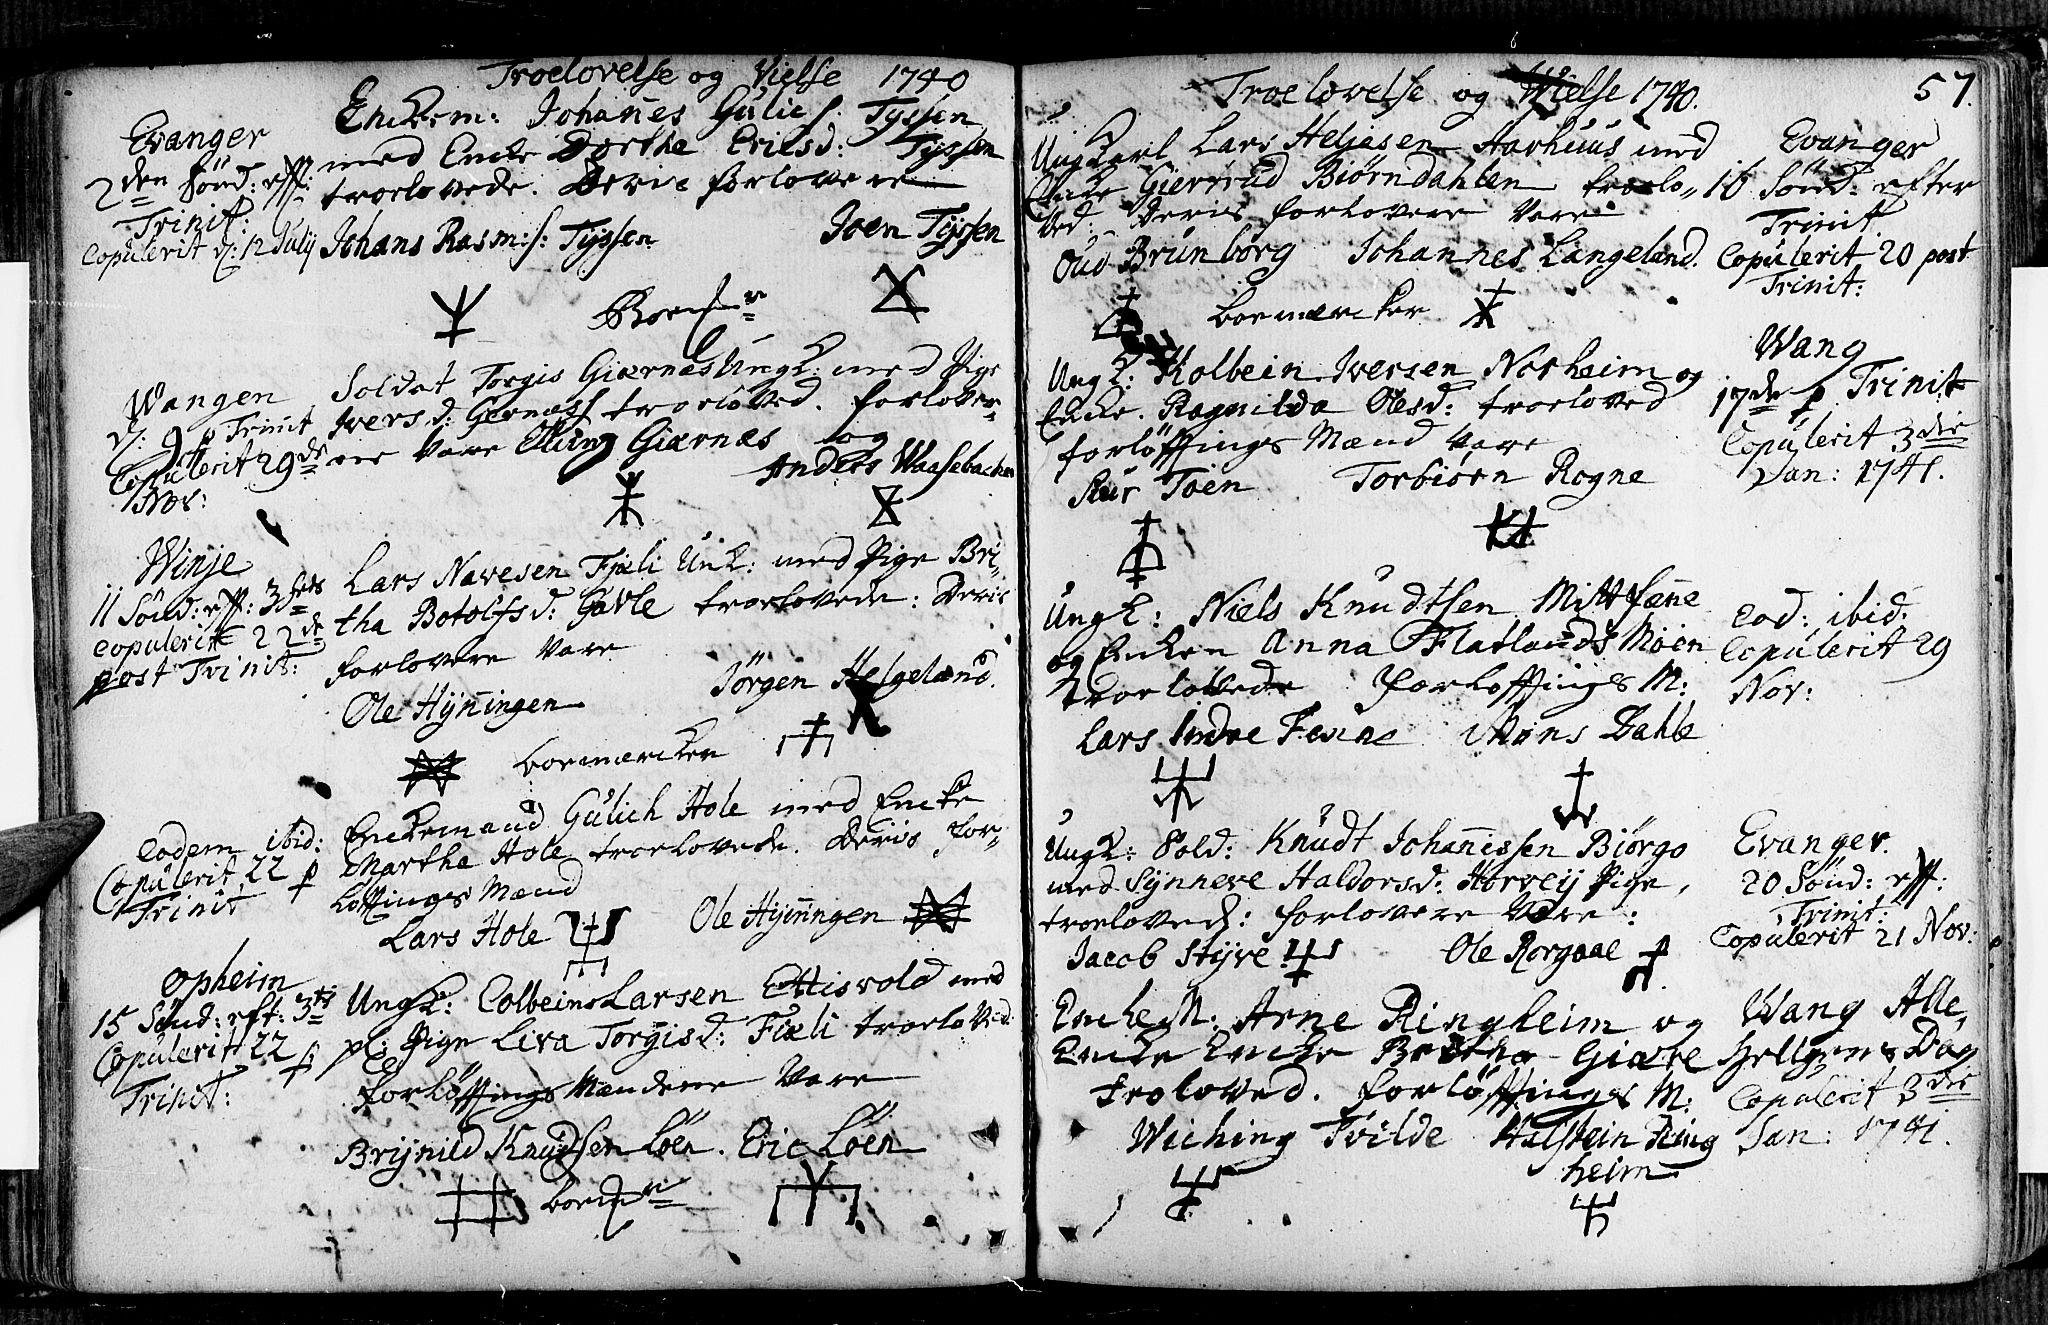 Troelovelse og Vielse 1740
Evanger
2den Sönd: eff:
Trinit:
Copulerit d: 12 Julij
Enckem: Johanes Gulics: Tyssen
med Encke Dorthe Ericsd: Tyssen
troelovede. Deris forlovere
Johans Rasm:s: Tyssen Joen Tyssen
Wangen
d: 9 p Trinit
Copulerit 29de
Nov:
Soldat Torgis Giærnes Ungk: med Pige
Iversd: Gernæss troeloved. forlover-
ne vare Elling Giærnæs og
Anders Waasebacken
Winje
11 Sönd: eff: 3
Copulerit 22de
post Trinit:
Lars Navesen Fjæli Unk: med Pige Bri-
tha Botolfsd: Gavle troelovede: Deris
forlovere vare
Ole Hyningen Jörgen Helgeland
boemæreker
Eodem ibid:
Copulerit 22 p
Trinit
Enckemand Gulich Hole med Encke
Martha Hole troelovede. Deris for-
løffnings Mænd
Lars Hole Ole Hyningen
Opheim
15 Sönd: eft: 3ts
Copulerit 22 p
Trinit:
Ungk: Colbein Larsen Ettisvold med
p: Pige Liva Torgisd: Fiæli troeloved
forløffnings Mændene vare
Brynild Knudsen Löen. Eric Löen
Troelovelse og Vielse 1740. 57.
Ungkarl Lars Heljesen Aarhuus med
Encke Giertrud Biørndahlen troelo-
ved: Deris forlovere vare
Oud Brunborg Johannes Langeland.
boemærcker
Evanger
16 Sönd: efter
Trinit.
Copulerit 20 post
Trinit:
Ungk: Kolbein Iversen Norheim og
Encke. Ragnilda Olesd: troeloved
forløffnings Mænd vare
Siur Toen Torbiørn Rogne
Wang
17de p Trinit
Copulerit 3die
Jan: 1741.
Ungk: Niels Knudtsen Mittfæne
og Encken Anna Flatlands Moen
troelovede forløffnings M:
Lars Indre Fenne Mons Dahle
Eod: ibid:
Copulerit 29
Nov:
Ungk: Sold: Knudt Johannissen Biørgo
med Synneve Haldorsd: Horvey Pige,
troeloved: forlovere vare:
Jacob Styve Ole Rorgaae
Evanger.
20 Sönd: eff:
Trinit:
Copulerit 21 Nov:
EnckeM: Arne Ringheim og
Encke Encke Britha Giære
troloved. forløffnings M:
Wiching Tvilde Halstein Ring
heim
Wang Alle
Hellgens Dag
Copulerit 3die
Jan: 1741.